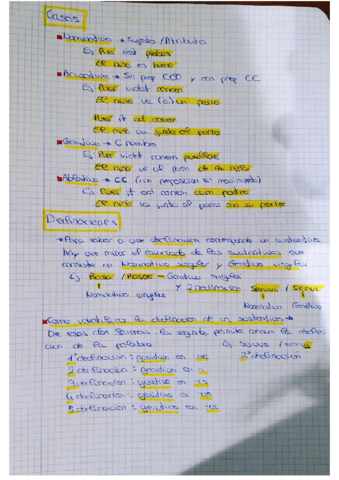 Casos
Nominativo → Sujeto / Atributo
Ej: Puer est
El niño es bueno
Acusativo → Sin prep COD y con prep CC
Ej: Puer videt canem
El niño ve (a) un perro
Puer it ad canem
El niño va junto al perro
Genitivo → C nombre
Ej: Puer videt canem puellae
El niño ve al perro de la niña
Ablativo → CC (con preposición si movimiento)
Ej: Puer it ad canem cum
El niño va junto al perro con su padre
Declinaciones
Para saber a que declinación corresponde un sustantivo
hay que mirar el enunciado de los sustantivos que
consiste en Nominativo singular y Genitivo singular
Ej: Rosa / Rosae → Genitivo singular
Nominativo singular
2 declinación Servus / Servi
Nominativo Genitivo
Como identificar la declinación de un sustantivo →
De esas dos formas, la segunda permite conocer la declina-
ción de la palabra. Ej: servus / servi
1ª declinación: genitivo en -ae 2ª declinación
2 declinación: genitivo en -i
3 declinación: genitivo en -is
4 declinación: genitivo en -us
5 declinación: genitivo en -ei